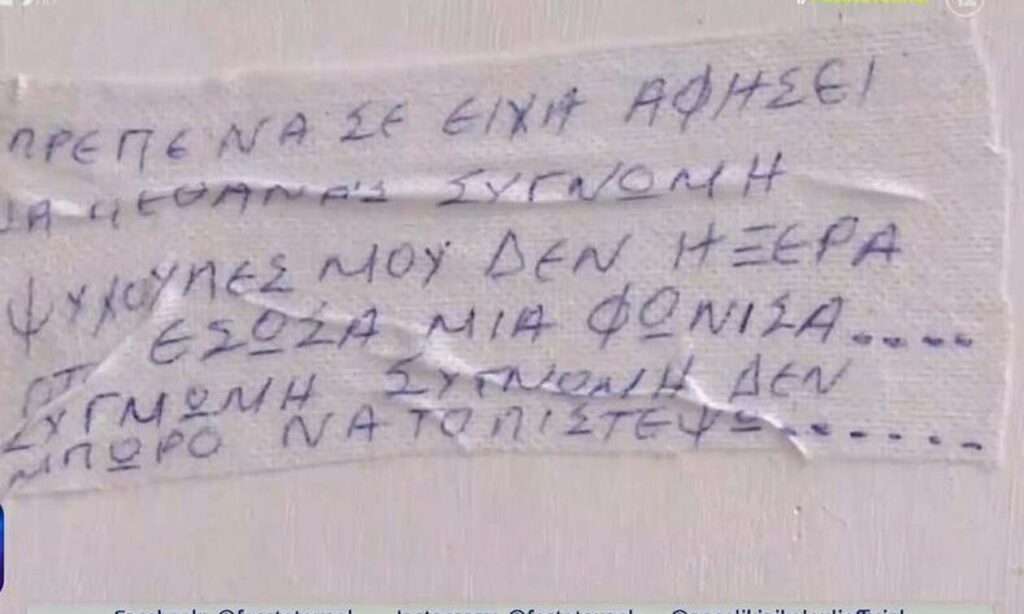 ΠΡΕΠΕ ΝΑ ΣΕ ΕΙΧΑ ΑΦΗΣΕΙ
ΝΑ ΠΕΘΑΝΑΣ ΣΥΓΝΩΜΗ
ΨΥΧΟΥΛΕΣ ΜΟΥ ΔΕΝ ΗΞΕΡΑ
ΟΤΙ ΕΣΩΣΑ ΜΙΑ ΦΩΝΙΣΑ.....
ΣΥΓΜΩΜΗ ΣΥΓΝΩΜΗ ΔΕΝ
ΜΠΩΡΟ ΝΑ ΤΟ ΠΙΣΤΕΨΩ........